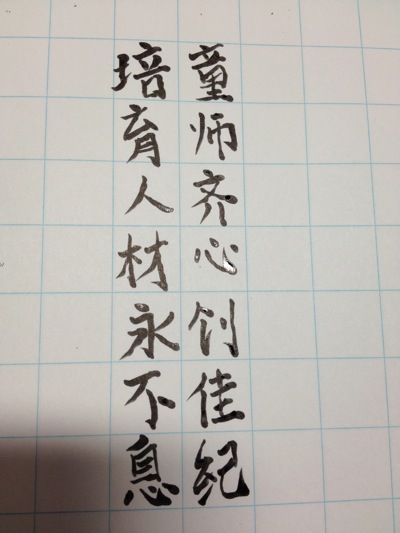 童师齐心创佳纪
培育人材永不息